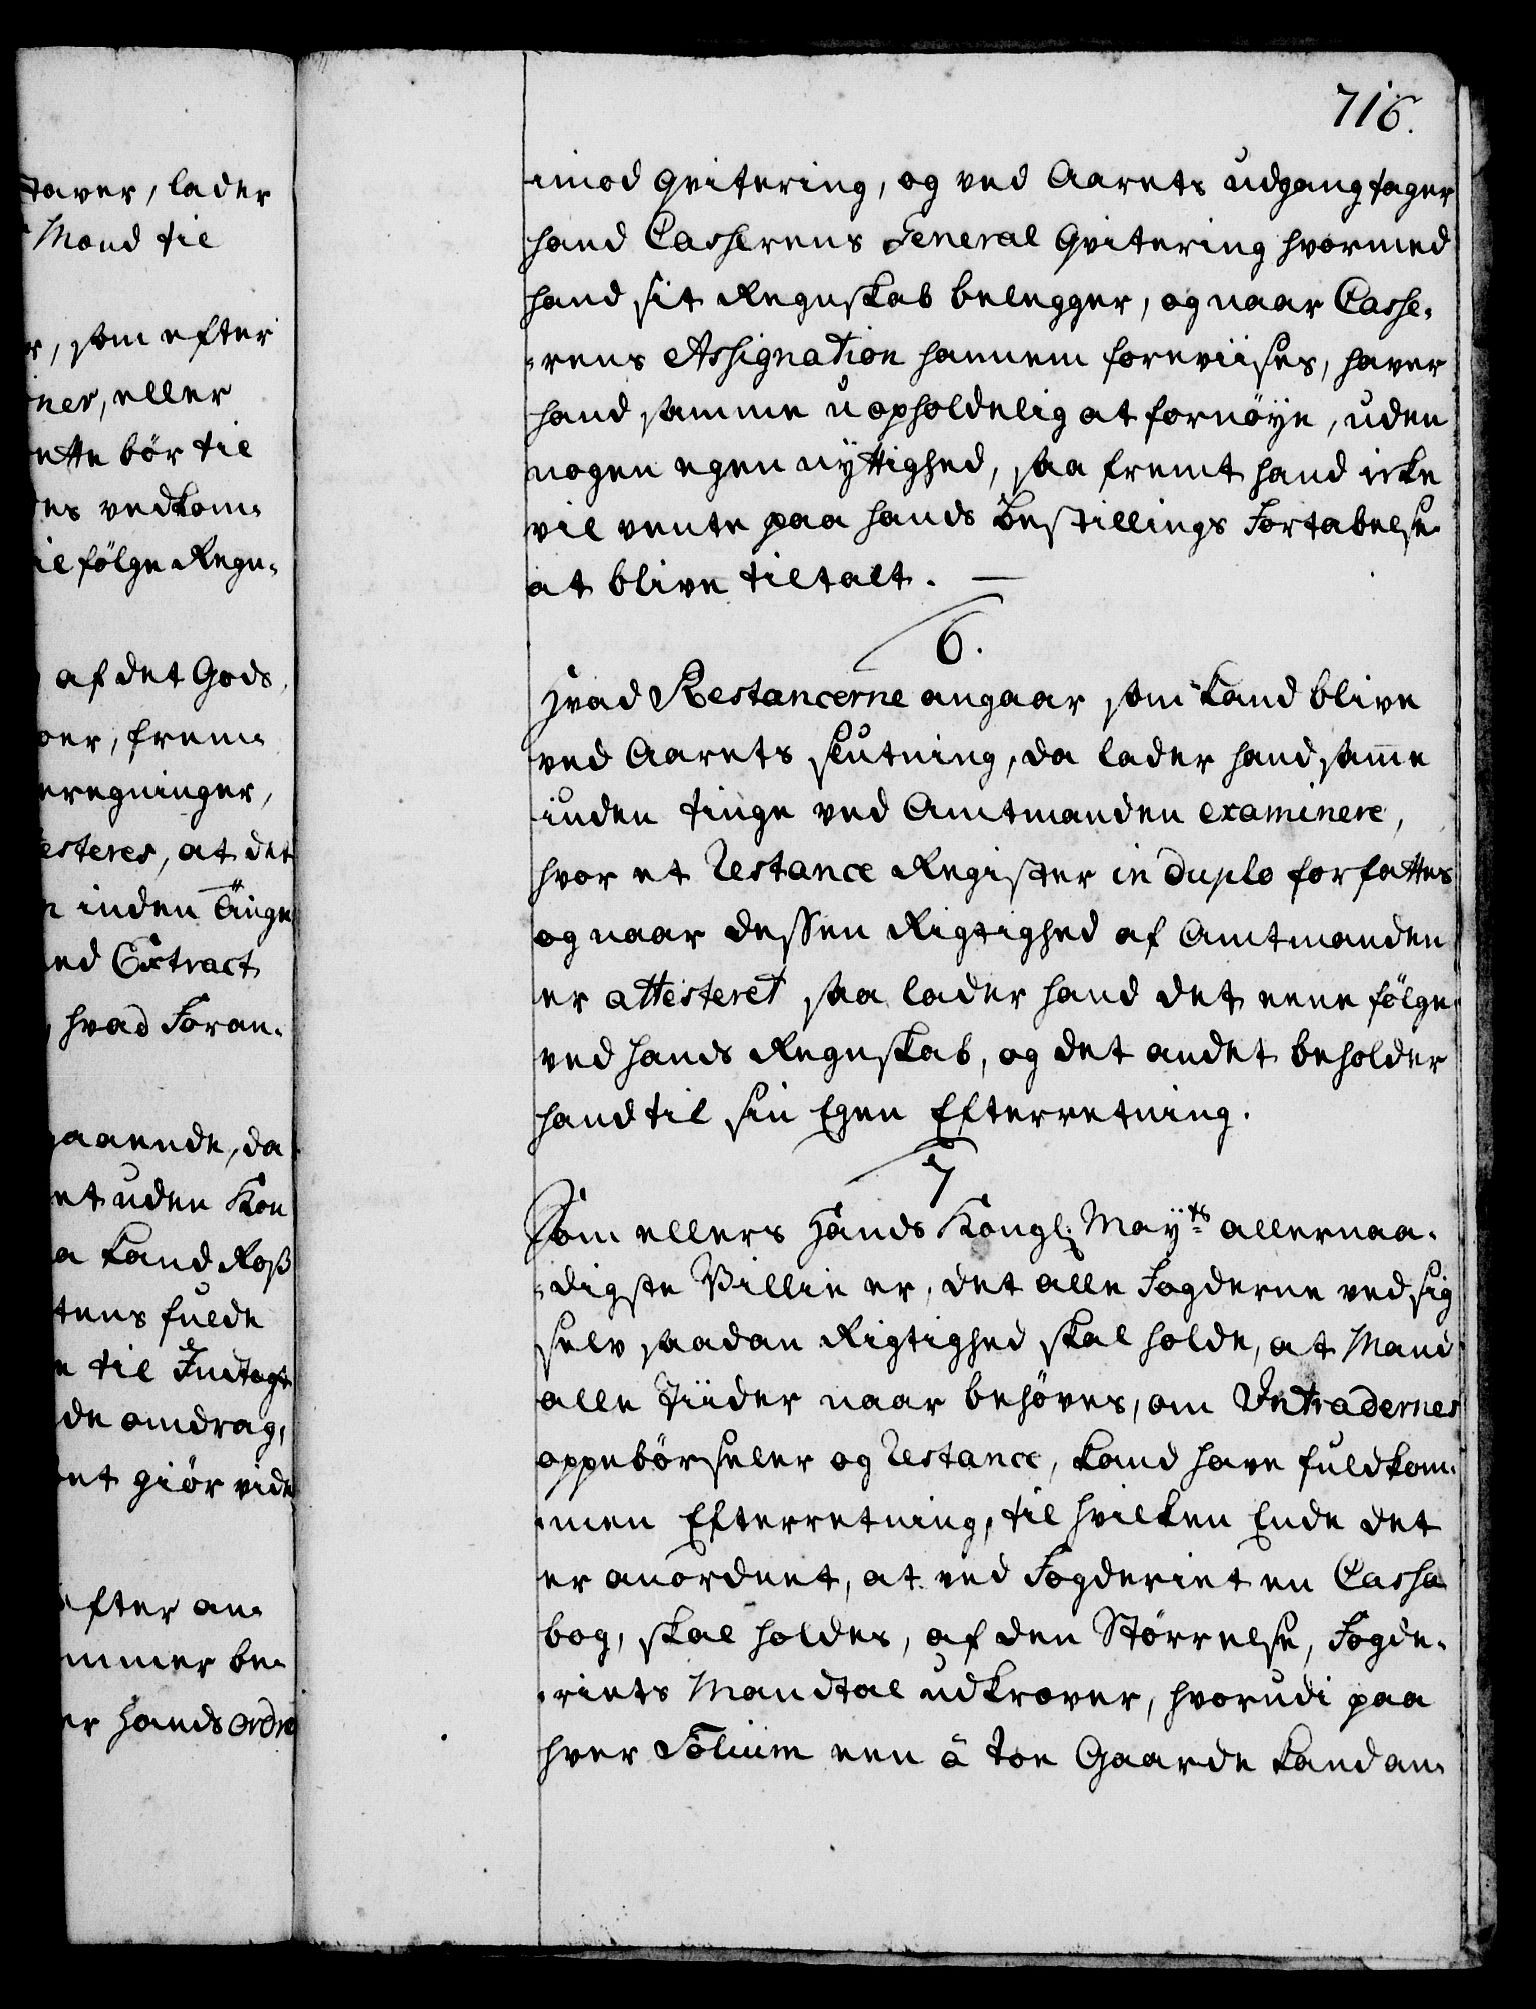 taver, lader
Mand til
r, som efter
ner, eller
rette bör til
res vedkom„
il fölge Regn„
af det Gods
oer, frem„
eregninger,
esteres, at det
n inden Tinge
ed Extract
hvad Foran„
gaaende, da
et uden Kon
a kand Roß
tens fulde
e til Indtægt
de omdrag,
et giör vide
efter an„
mmer be„
er hands ordre
716.
imod Qvitering, og ved Aarets udgang tager
hand Casserens General Qvitering hvormed
hand sit Regnskab belegger, og naar Casse„
„rens Assignation hannem foreviises, haver
hand samme uopholdelig at fornöye, uden
nogen egennyttighed, saa fremt hand icke
vil vente paa hands Bestillings Fortabelse
at blive tiltalt. —
6.
Hvad Restancerne angaar som kand blive
ved Aarets slutning, da lader hand samme
inden tinge ved Amtmanden examinere,
hvor et Restance Register in duplo forfattes
og naar dessen Rigtighed af Amtmanden
er attesteret saa lader hand det eene fölge
ved hands Regnskab, og det andet beholder
hand til sin Egen Efterretning.
7
Som ellers Hands Kongl: Mayts allernaa„
„digste Villie er, det alle Fogderne ved sig
selv saadan Rigtighed skal holde, at Mand
alle Tiider naar behöves, om Intradernes
oppebörseler og Restance, kand have fuldkom„
„men Efterretning, til hvilken Ende det
er anordnet, at ved Fogderiet en Cassa
bog, skal holdes, af den Störrelse, Fogde„
„riets Mandtal udkræver, hvorudi paa
hver Folium een â toe Gaarde kand an„